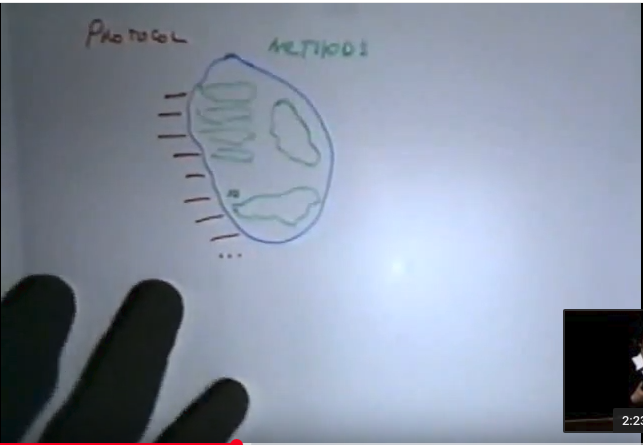 PROTOCOL
METHODS
...
2:23